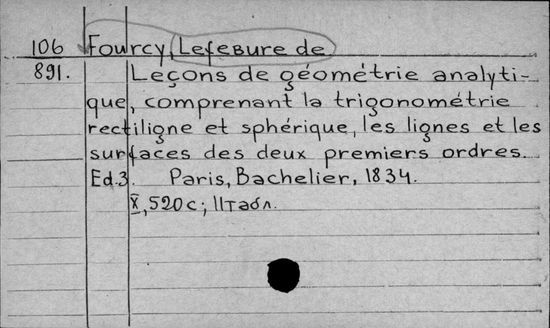 106 Fourcy, Lefebure de
891. Leçons de géométrie analyti-
que, comprenant la trigonométrie
rectiligne et sphérique, les lignes et les
surfaces des deux premiers ordres.
Ed.3. Paris, Bachelier, 1834.
X, 520 с; 11 табл.